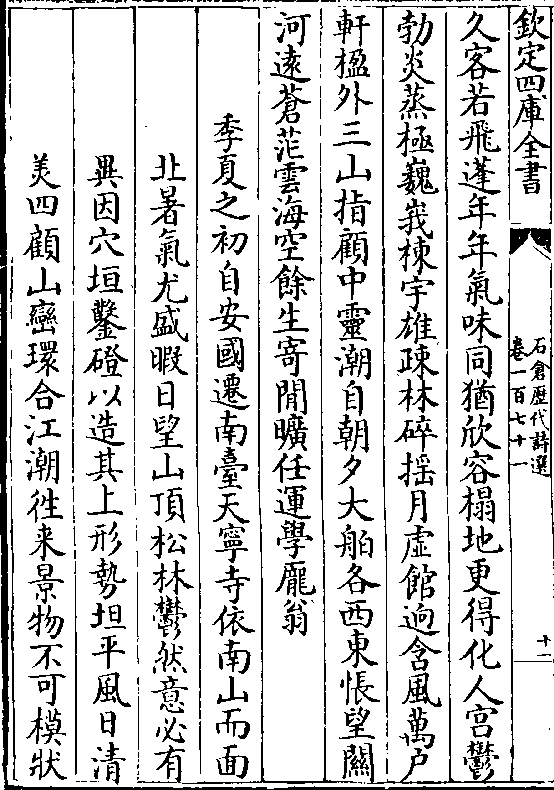 欽定四庫全書
石倉歷代詩選
卷一百七十一
十二
久客若飛蓬年年氣味同猶欣容榻地更得化人宮鬱
勃炎蒸極巍峩棟宇雄疎林碎揺月虚館逈含風萬戶
軒楹外三山指顧中靈潮自朝夕大舶各西東悵望關
河逺蒼茫雲海空餘生寄閒曠任運學龐翁
季夏之初自安國遷南臺天寧寺依南山而面
北暑氣尤盛暇日望山頂松林鬱然意必有
異因穴垣鑿磴以造其上形勢坦平風日清
美四顧山巒環合江潮徃来景物不可模狀